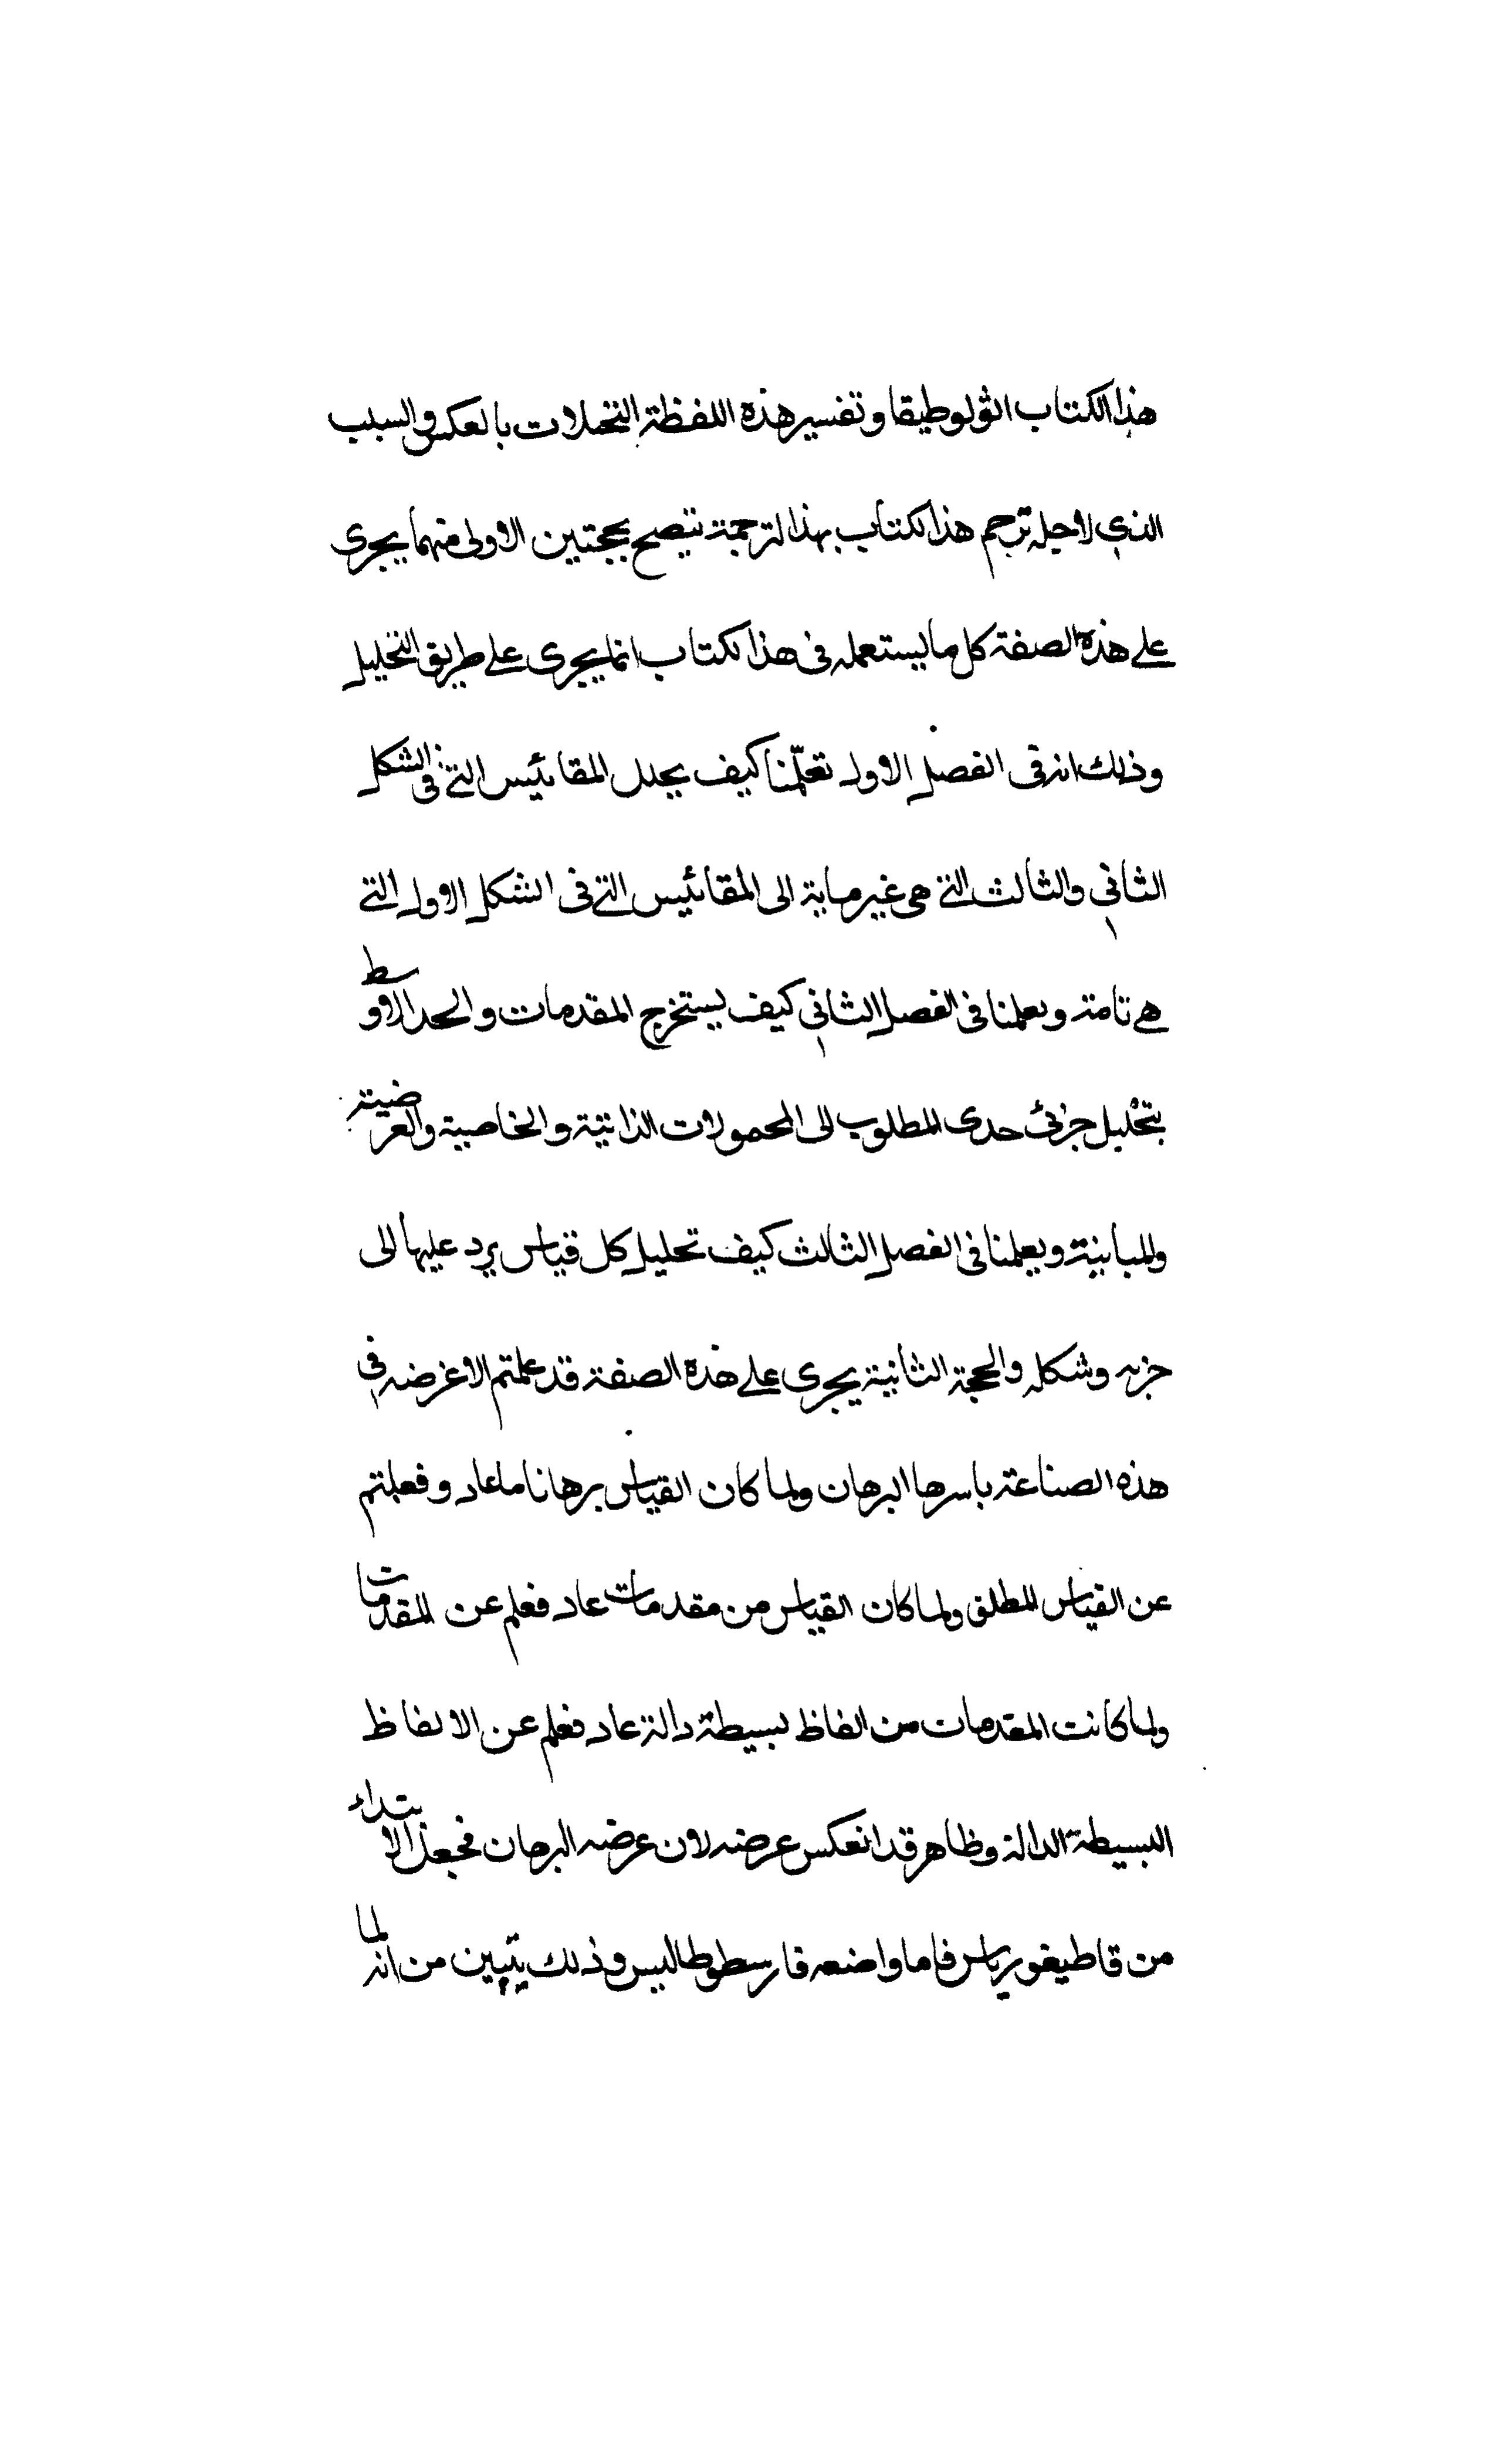 هذا الكتاب انولوطيقا وتفسير هذه اللفظة التحليلات بالعكس والسبب
الذي لاجله ترجم هذا لكتاب بهذا لترجمة يتصح بحجتين الاولى منهما يجرى
على هذه الصفة كل ما يستعمله فى هذا لكتاب انما يجرى على طريق التحليل
وذلك انه فى الفصل الاول تعلّمنا كيف يحلل المقائيس التى فى الشكل
الثانى والثالث التى هى غير مباينة الى المقائيس التى فى الشكل الاول التى
هى تامة ويعلمنا فى الفصل الثانى كيف يستخرج المقدمات والحد الاوسط
بتحليل جزئى حدى المطلوب الى المحمولات الذاتية والخاصية والعرضية
والمباينة ويعلمنا فى الفصل الثالث كيف تحليل كل قياس يرد عليها الى
جزيه وشكله والحجة الثانية يجرى على هذه الصفة قد علمتم الا غرضه فى
هذه الصناعة باسرها البرهان ولما كان القياس برهانا ما عاد وفعلتم
عن القياس المطلق ولما كان القياس من مقدمات عاد فعلم عن المقدمات
ولما كانت المقدمات من الفاظ بسيطة دالة عاد فعلم عن الالفاظ
البسيطة الدالة وظاهر قد انعكس عرضه لان عرضه البرهان فجعل الابتداء
من قاطيغورياس فاما واضعه فارسطوطاليس وذلك يتبين من انه لما